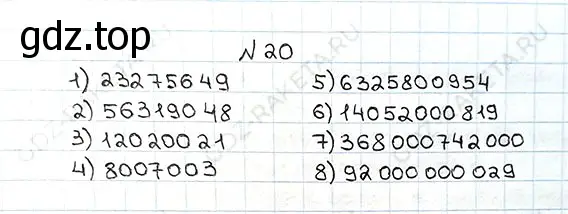 gdz.top
№ 20
1) 23275649
2) 56319048
3) 12020021
4) 8007003
5) 6325800954
6) 14052000819
7) 368000742000
8) 92 000 000 029
GDZ-RAKETA.RU